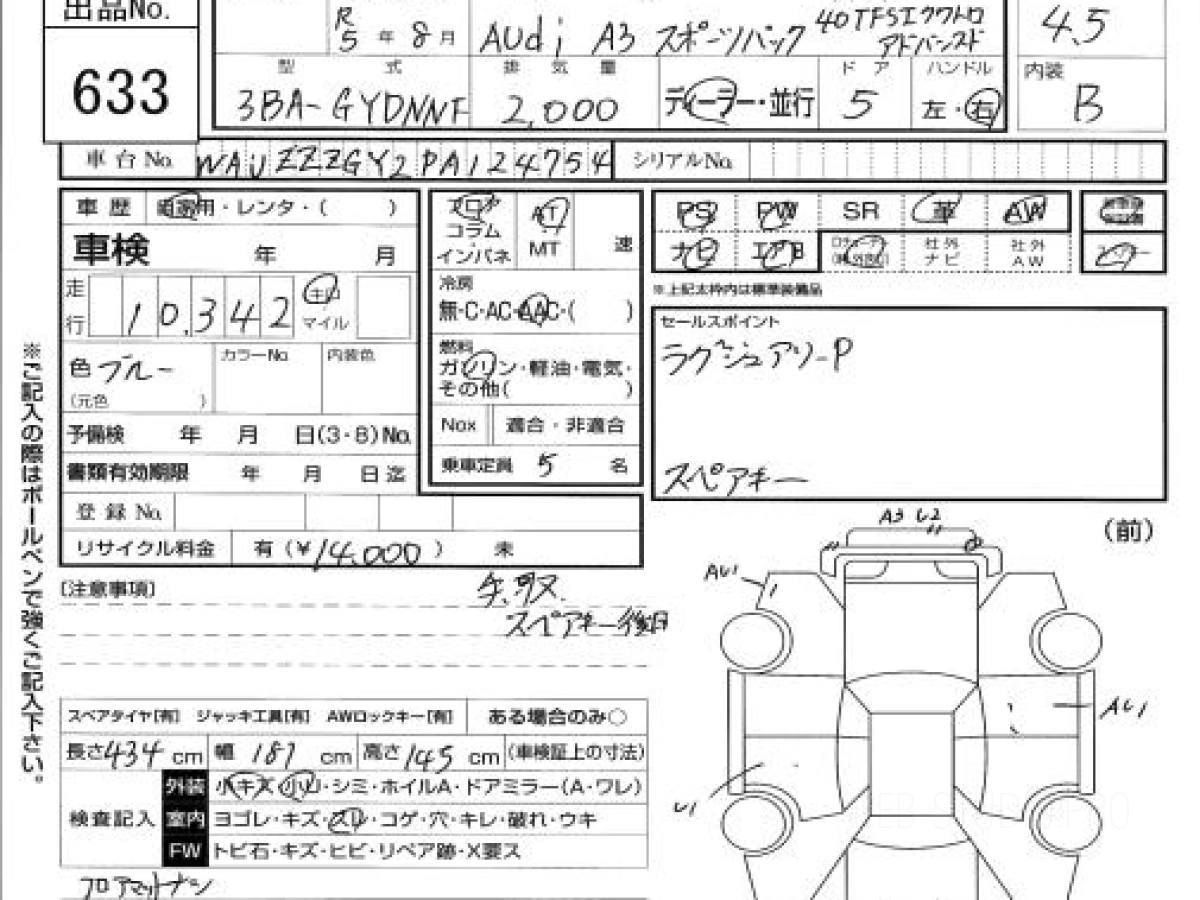 出品No.
633
R5年8月
Audi A3 スポーツバック 40TFSIクワトロ
アドバンスド
4.5
型式
3BA-GYDNNF
排気量
2,000
ディーラー・並行
ドア
5
ハンドル
左・右
内装
B
車台No. WAUZZZGY2PA124754 シリアルNo.
車歴 自家用・レンタ・( )
車検 年 月
走行 10,342 キロ マイル
色 ブルー
(元色 )
カラーNo.
内装色
予備検 年 月 日(3・8)No.
書類有効期限 年 月 日迄
登録No.
リサイクル料金 有(¥14,000) 未
フロア
コラム
インパネ
AT
MT
速
冷房
無・C・AC・AAC・( )
燃料
ガソリン・軽油・電気・
その他( )
Nox 適合・非適合
乗車定員 5 名
PS PW SR 革 AW
ナビ エアB
社外ナビ
社外AW
※上記太枠内は標準装備品
セールスポイント
ラグジュアリーP
スペアキー
※ご記入の際はボールペンで強くご記入下さい。
[注意事項]
スペアキー後日
スペアタイヤ[有] ジャッキ工具[有] AWロックキー[有] ある場合のみ○
長さ434cm 幅181cm 高さ145cm (車検証上の寸法)
検査記入
外装 小キズ・小凹・シミ・ホイルA・ドアミラー(A・ワレ)
室内 ヨゴレ・キズ・スレ・コゲ・穴・キレ・破れ・ウキ
FW トビ石・キズ・ヒビ・リペア跡・X要ス
フロアマットナシ
(前)
A3 U2
AU1
AU1
U1